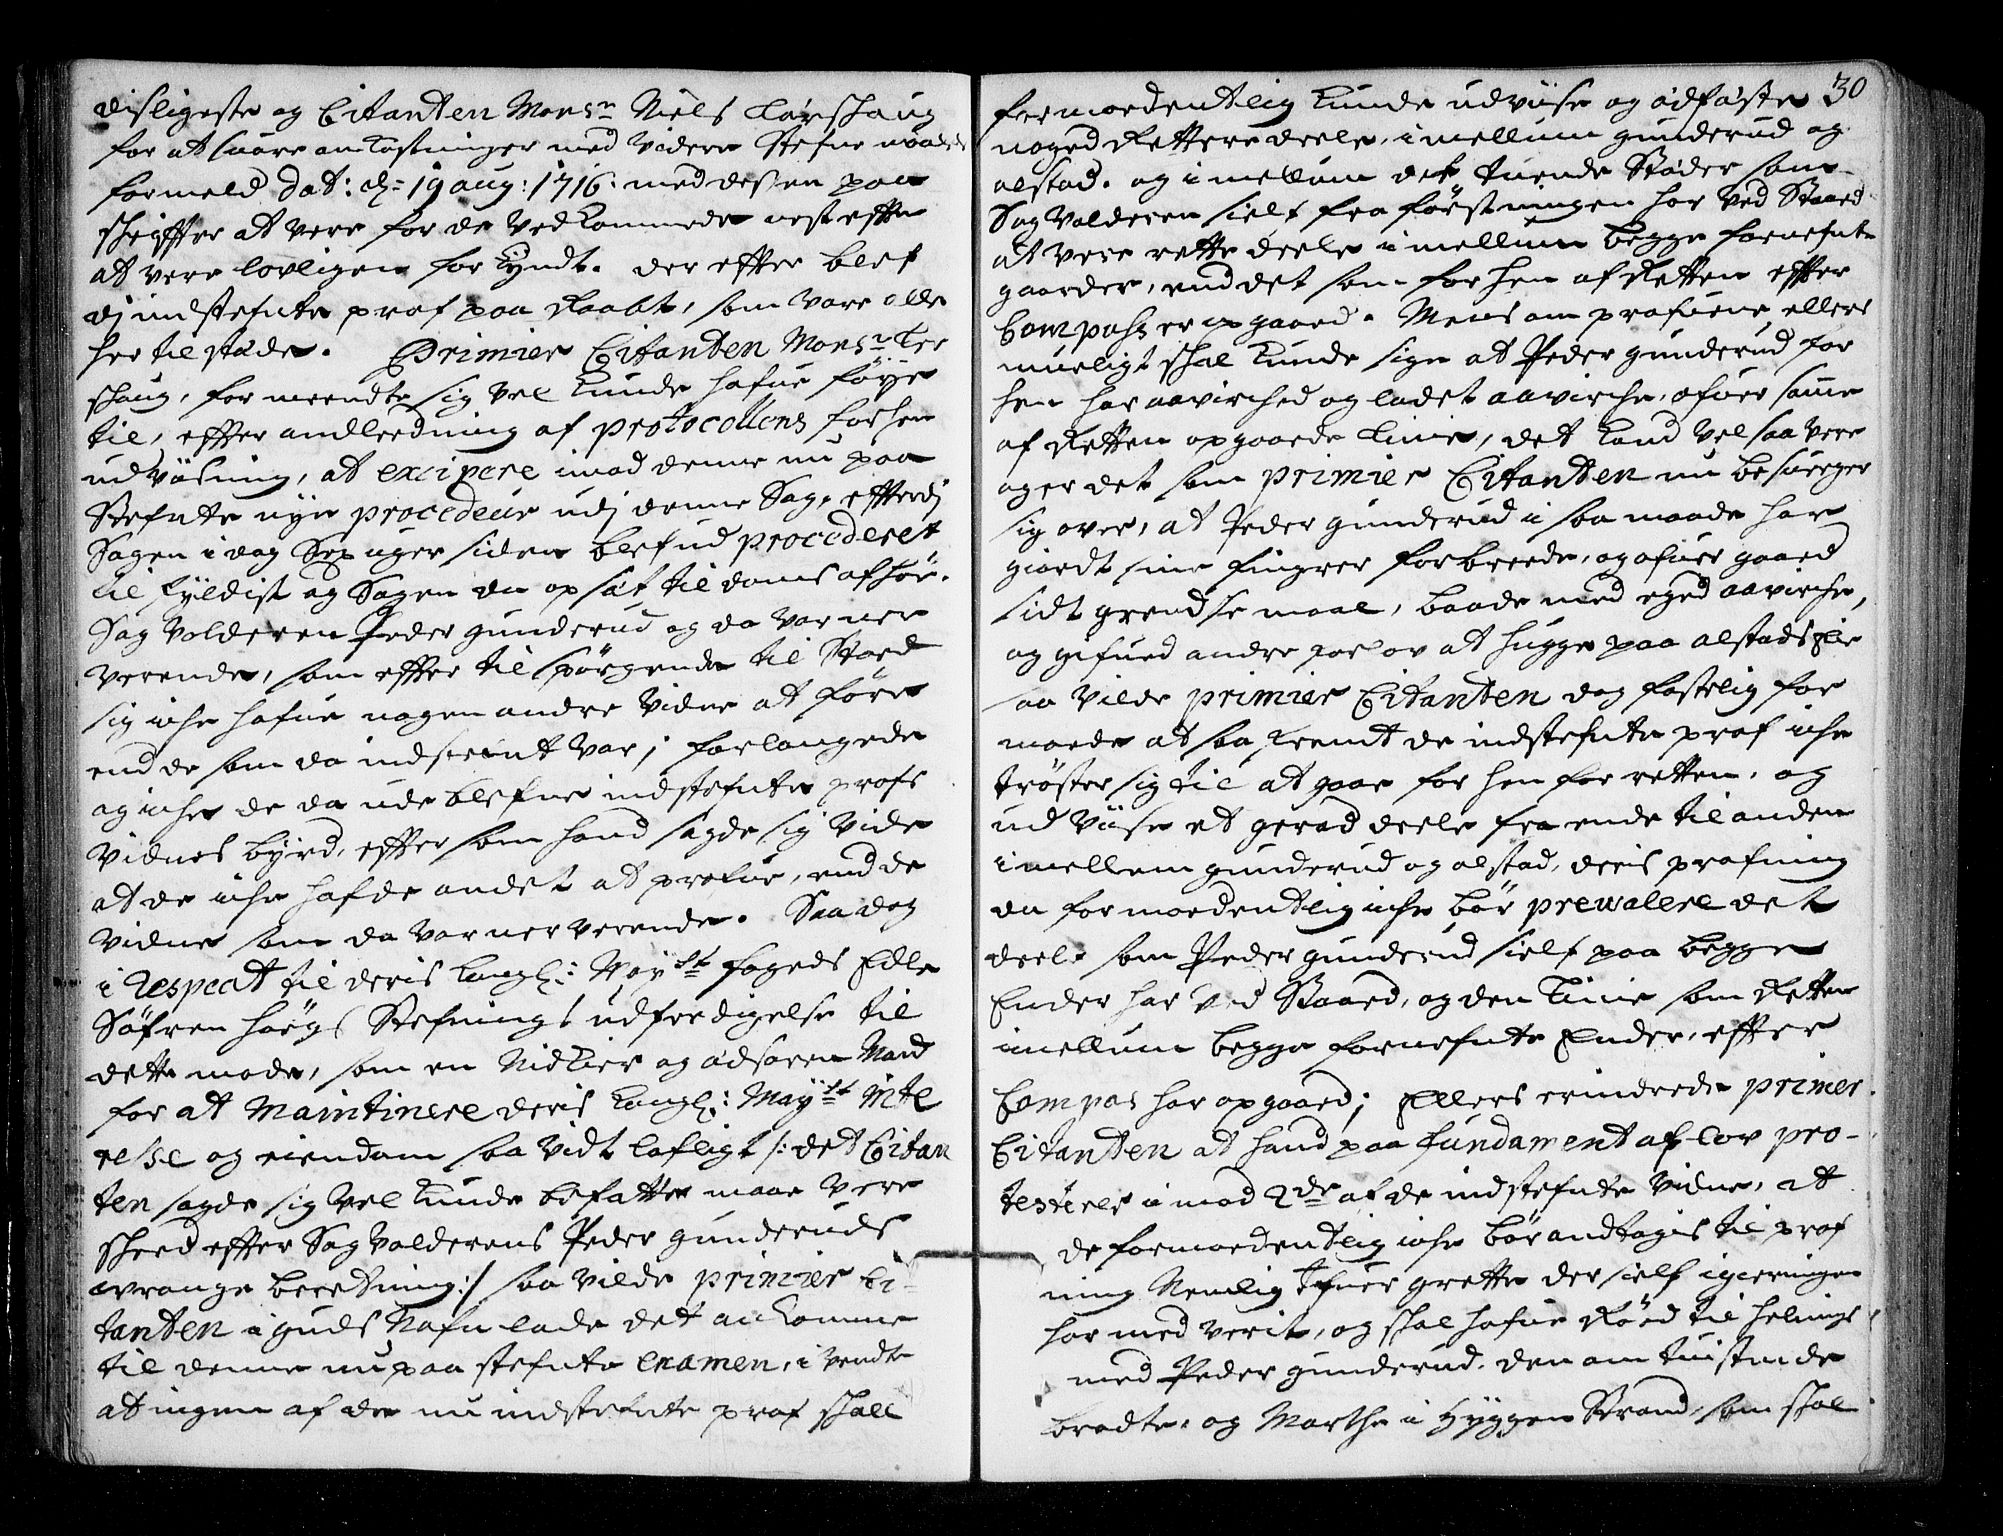 disligeste og Citanten Monsr Niels Lørschoug
for at suare omkostninger med videre Stefne maade
formeld dat: d: 19 aug: 1716. med des en paa
schrifter at vere for de vedkommede
at vere lovligen forkyndt. der efter blef
dj indstefnte prof paa Raabt, som vare alle
her tilstede. Primier Citanten Monsr Lør
schoug, formeendte sig vel kunde hafue føye
til, efter andleedning af protocollens forhen
udviisning, at excipere imod denne nu paa
Stefnte nye procedeur udj denne Sag, efterdj
Sagen i dag Sex uger siden blef ud procederet
til fyldist og Sagen da opsat til doms afhør.
Sagvolderen Peder gunderud og da var ner
verende, som efter tilspørgende til stoed
sig iche hafue nogen andre vidne at føre
end de som da indstevnt var; forlangede
og iche de da udeblefne indstefnte profs
vidnes byrd, efter som hand sagde sig vide
at de iche hafde andet at profue, end de
vidne som da var nerverende. Saa dog
i Respect til deris Kongl: Mayst fogeds Edle
Søfren høegs Stefnings udferdigelse til
dette mode, som en Nidkier og Mand
for at Maintinere deris Kongl: Mayst Inte
resse og eiendom saa vidt lofligt /: det Citan
ten sagde sig vel kunde befatte maae vere
scheed efter Sagvolderens Peder gunderuds
wrange beretning :/ saa vilde primier Ci-
tanten i guds Nafn lade det ankomme
til denne nu paa stefnte examen, i vendte
at ingen af de nu indstefnte prof skall
30
formoedentlig kunde udviise og
noged Rettere deele, imellum gunderud og
alstad. og imellum de tuende Stæder som
Sagvolderen sielf fra førstningen har ved Staaed
at vere rette deele imellum begge fornefnte
gaarder, end det som forhen af Retten efter
Compass er opgaaed. Mens om profuene, ellers
mueligt skal kunde sige at Peder gunderud for
hen har aavirched og ladet aavirche, ofuer samme
af Retten opgaaede Linie, det kand vel saa vere
og er det som primier Citanten nu besuerger
sig over, at Peder gunderud i saa maade har
giordt sine fingrer for breede, og ofuer gaaed
sidt grendse maal, baade med eged aavirche,
og gifued andre forlov at hugge paa alstads Eie
saa vilde primier Citanten dog fastelig for
moede at saa fremt de indstefnte prof iche
trøster sig til at gaae forhen for retten, og
ud viise et gerad deele fra ende til anden
imellem gunderud og alstad, deris profning
da formoedentlig iche bør prewalere det
deele som Peder gunderud sielf paa begge
Ender har ved Staaed, og den Linie som Retten
imellum begge fornefnte Ender, efter
Compas har opgaaed; Ellers erindrede primer
Citanten at hand paa fundament af lov pro-
testerer imod 2de af de indstefnte vidne, at
de formoedentlig iche bør andtagis til prof
ning Nemlig Ifuer grette der sielf i gierningen
har med verit, og skal hafue Røed til helings
med Peder gunderud, den omtuistende
braadte, og Marthe i Hyggen Strand, som skal